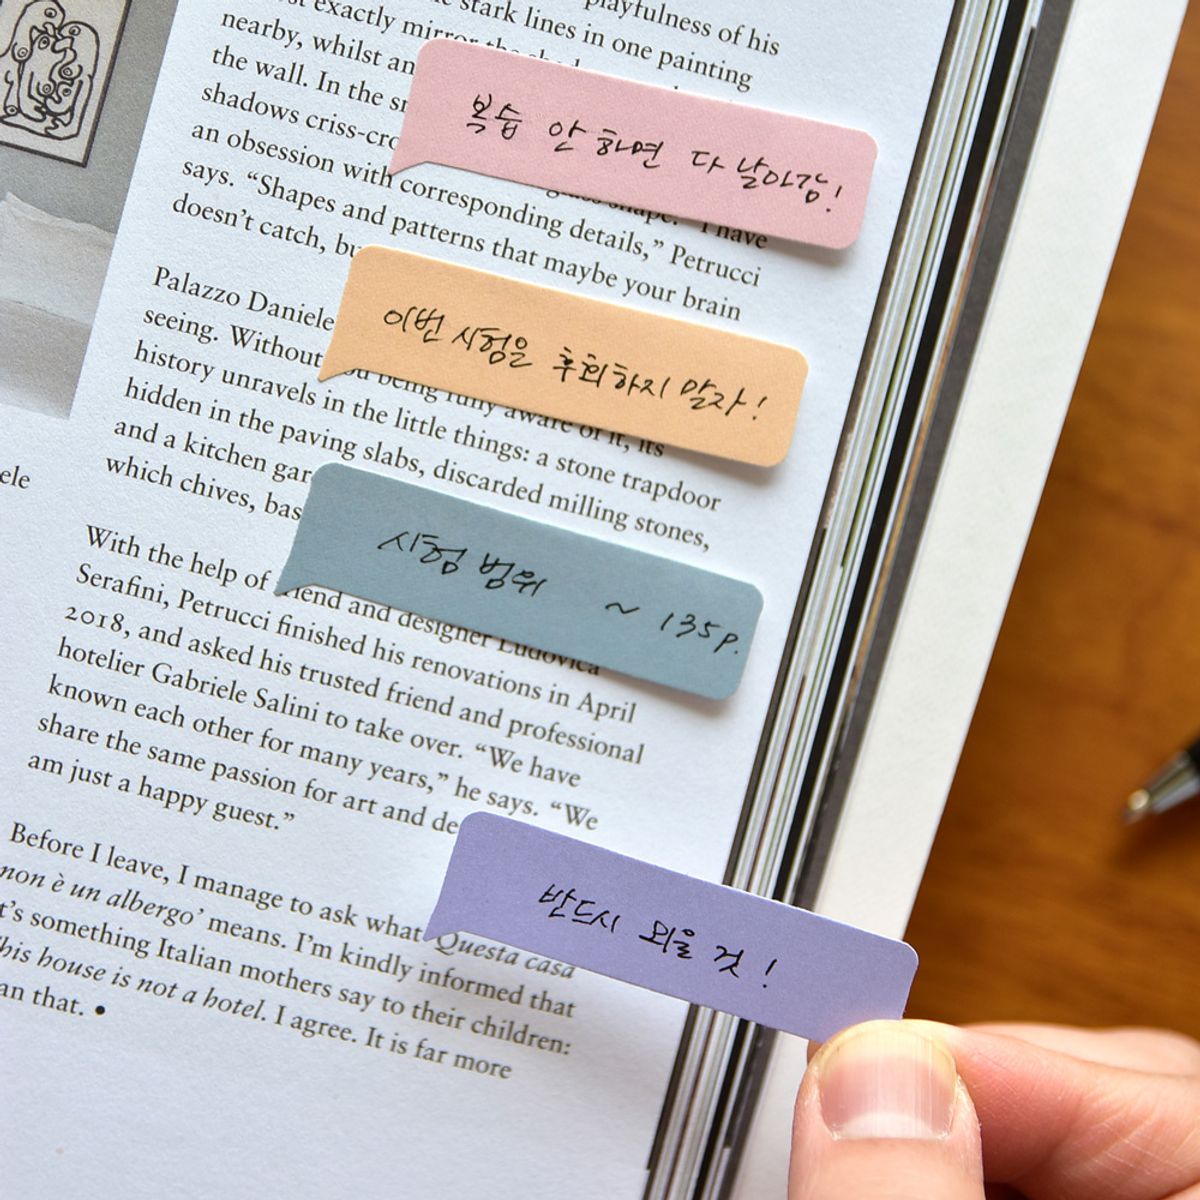 playfulness of his
stark lines in one painting
exactly mirror the
nearby, whilst an
the wall. In the
shadows criss-cro
an obsession with corresponding details,” Petrucci
says. “Shapes and patterns that maybe your brain
doesn’t catch, bu
복습 안하면 다 날아감!
shape. “I have
Palazzo Daniele
seeing. Without you being fully aware of it, its
history unravels in the little things: a stone trapdoor
hidden in the paving slabs, discarded milling stones,
and a kitchen gar
which chives, bas
이번 시험은 후회하지 말자!
시험 범위 ~ 135p.
ele
With the help of friend and designer Ludovica
Serafini, Petrucci finished his renovations in April
2018, and asked his trusted friend and professional
hotelier Gabriele Salini to take over. “We have
known each other for many years,” he says. “We
share the same passion for art and de
am just a happy guest.”
반드시 외울 것!
Before I leave, I manage to ask what ‘Questa casa
non è un albergo’ means. I’m kindly informed that
t’s something Italian mothers say to their children:
his house is not a hotel. I agree. It is far more
an that. •